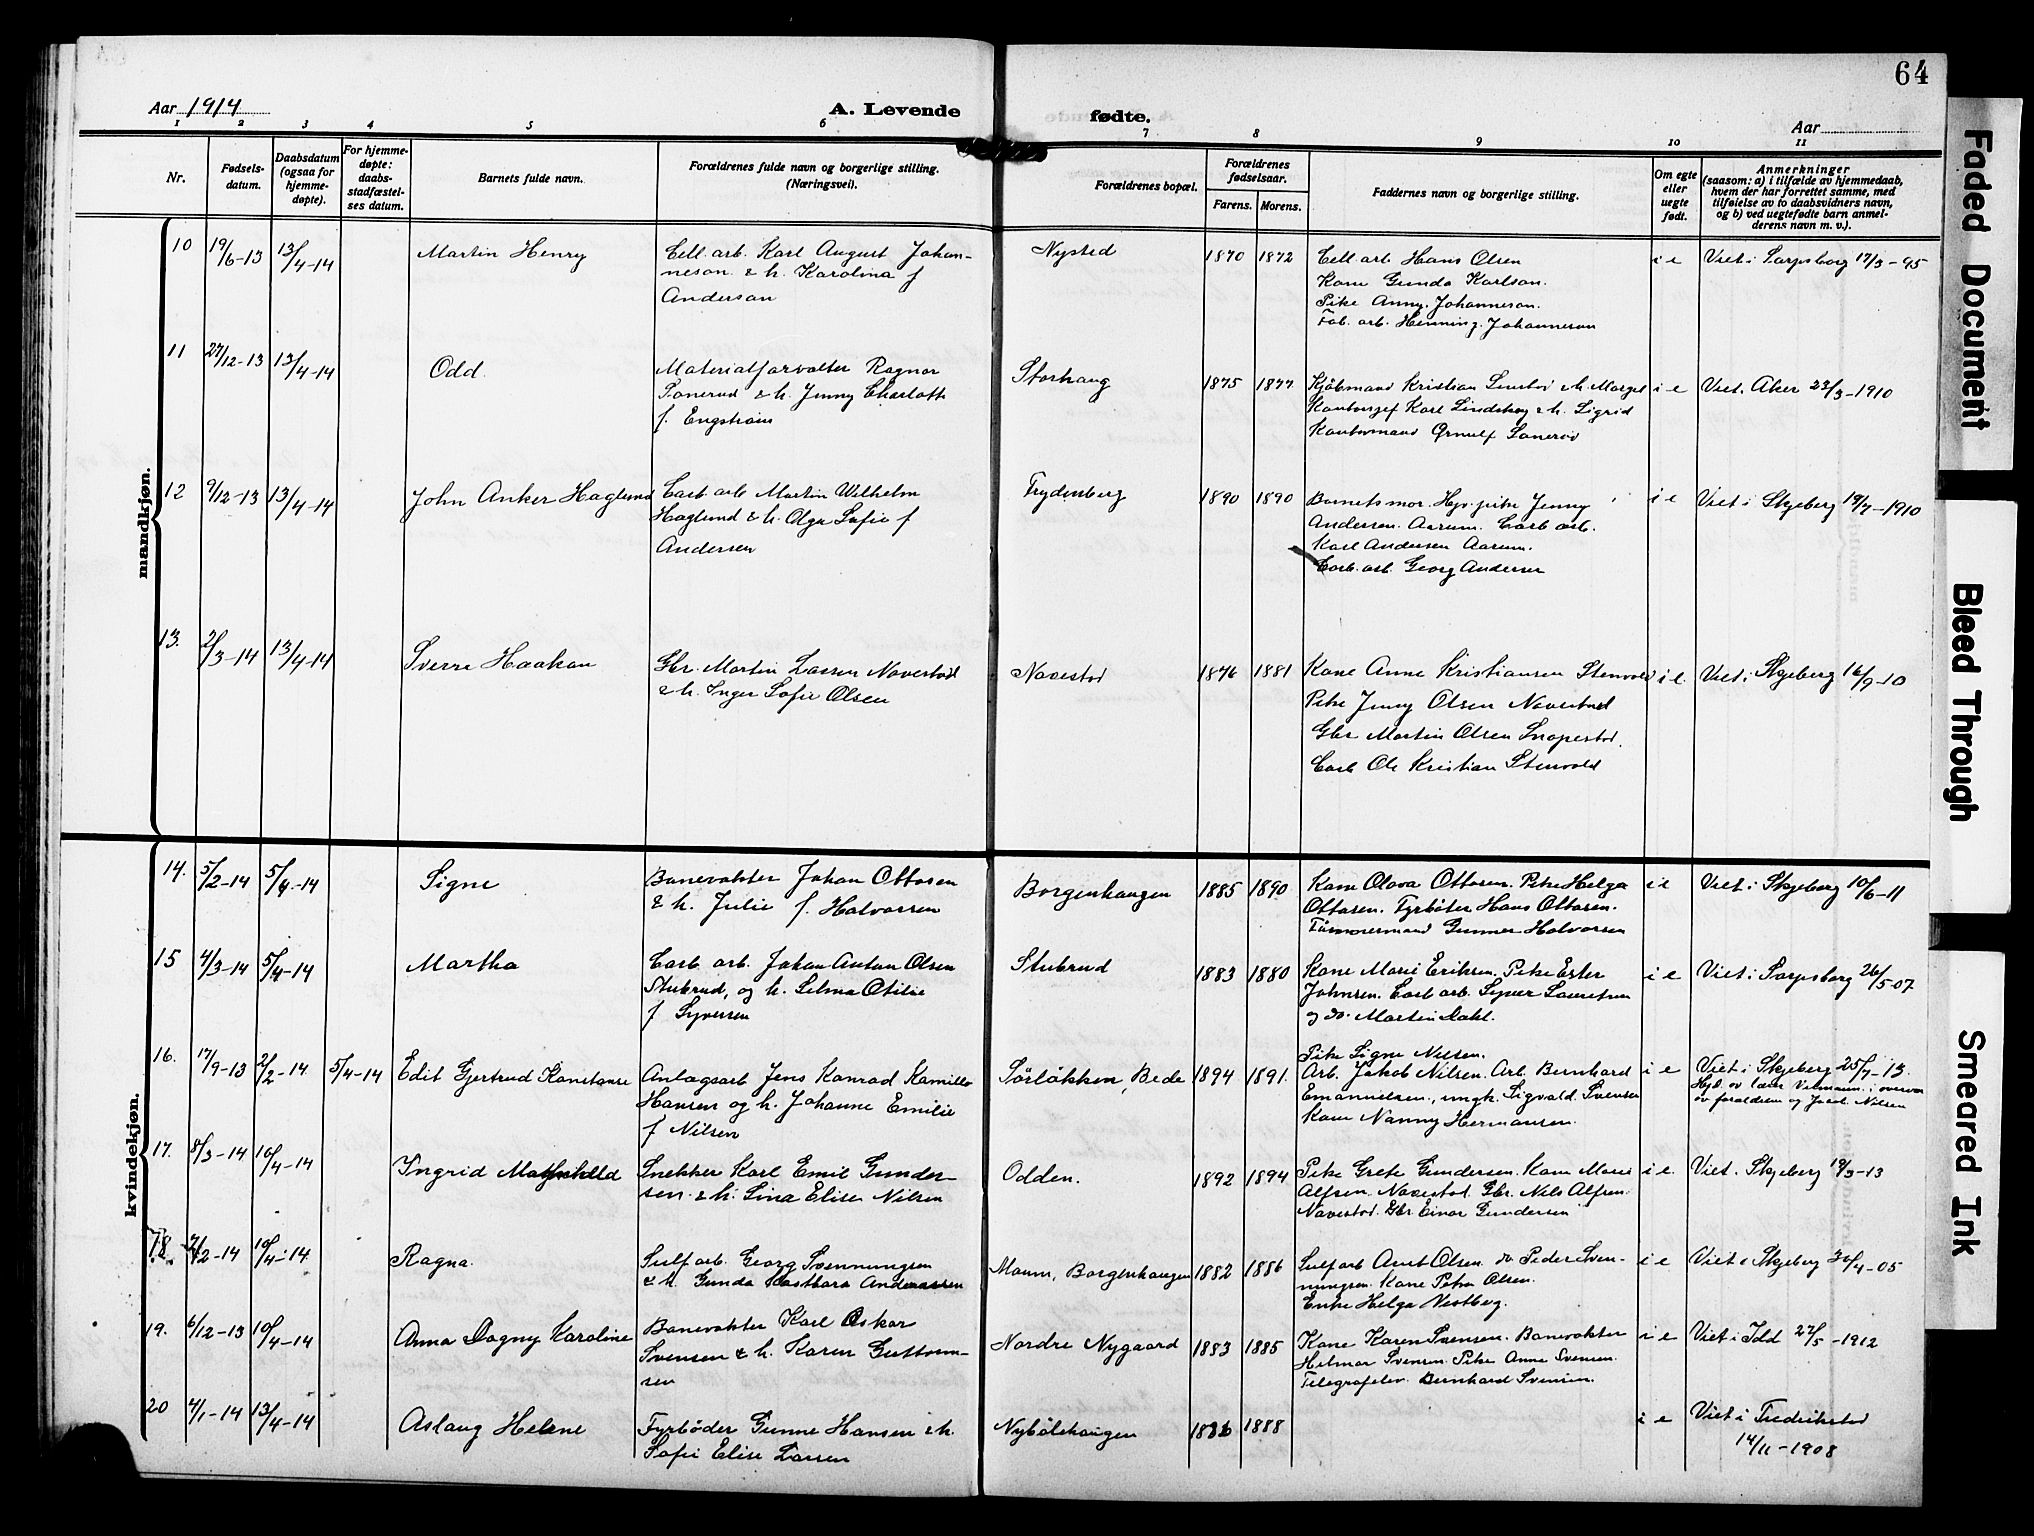 64
Aar 1914
A. Levende
fødte.
Aar
1 2 3 4 5 6 7 8 9 10 11
Nr.
Fødsels-
datum.
Daabsdatum
(ogsaa for
hjemme-
døpte).
For hjemme-
døpte:
daabs-
stadfæstel-
ses datum.
Barnets fulde navn.
Forældrenes fulde navn og borgerlige stilling.
(Næringsvei).
Forældrenes bopæl.
Forældrenes
fødselsaar.
Farens. Morens.
Faddernes navn og borgerlige stilling.
Om egte
eller
uegte
født.
Anmerkninger
(saasom: a) i tilfælde av hjemmedaab,
hvem der har forrettet samme, med
tilføielse av to daabsvidners navn,
og b) ved uegtefødte barn anmel-
derens navn m. v.).
mandkjøn.
10 19/6-13 13/4-14 Martin Henry
Cell. arb. Karl August Johan-
neson & h. Karolina f
Anderson
Nysted 1870 1872
Cell arb. Hans Olsen
Kone Gunda Karlson.
Pike Anny Johanneson.
Fab. arb. Henning Johanneson
i e Viet i Sarpsborg 17/3-95
11 27/12-13 13/4-14 Odd
Materialforvalter Ragnar
Sonerud & h. Jenny Charlotte
f. Engstrøm
Storhaug 1875 1877
Kjøbmand Kristian h. Margit
Kontorsjef Karl Lindskog & h. Sigrid
Kontormand Ørnulf
i e Viet. Aker 23/3-1910
12 9/12-13 13/4-14 John Anker Haglund
Carb arb Martin Wilhelm
Haglund & h. Olga Sofie f
Andersen
Frydenberg 1890 1890
Barnets mor. Hjv. pike Jenny
Andersen. Aarum. Carb arb.
Karl Andersen Aarum.
Carb. arb. Georg Andersen
i e Viet i Skjeberg 19/7-1910
13. 2/3-14 13/4-14 Sverre Haakon
Gbr. Martin Larsen Navestad
& h. Inger Sofie Olsen
Navestad 1876 1881
Kone Anne Kristiansen Stenvold
Pike Jenny Olsen Navestad
Gbr Martin Olsen
Carb Ole Kristian Stenvold
i e. Viet i Skjeberg 16/9-10
kvindekjøn.
14. 5/2-14 5/4-14 Signe
Banevokter Johan Ottosen
& h. Julie f. Halvorsen
Borgenhaugen 1885 1890
Kone Olava Ottosen. Pike Helga
Ottosen. Fyrbøter Hans Ottosen.
Tømmermand Gunnar Halvorsen
i e Viet i Skjeberg 10/6-11
15 4/3-14 5/4-14 Martha
Carb. arb. Johan Anton Olsen
Stubrud, og h. Selma Otilie
f Syversen
Stubrud 1883 1880
Kone Marie Eriksen. Pike Ester
Johnsen. Carb arb. Syver Lauretsen
og do. Martin Dahl.
i e Viet i Sarpsborg 26/5-07
16. 17/9-13 2/2-14 5/4-14 Edit Gjertrud Konstanse
Anlægsarb Jens Konrad Kamillo
Hansen og h. Johanne Emilie
f Nilsen
Sørløkken, Bede 1894 1891.
Pike Signe Nilsen.
Arb. Jakob Nilsen. Arb. Bernhard
Emanuelsen, ungk. Sigvald Svensen
Kone Nanny Hermansen.
i e Viet i Skjeberg 25/7-13.
Hjd. av lærer i overvær
av foraldrene og Jacob Nilsen
17. 8/3-14 10/4-14 Yngrid Mathilde
Snekker Karl Emil Gunder-
sen & h. Lina Elise Nilsen
Odden. 1892 1894
Pike Grete Gundersen. Kone Marie
Alfsen Navestad. Gbr. Nils Alfsen
Navestad. Gbr Einar Gundersen
i e. Viet. Skjeberg 19/3-13
18. 7/2-14 10/4-14 Ragna.
Sulf arb. Georg Svenningsen
& h. Gunda Kastbara Andreassen
Moum, Borgenhaugen 1882 1886
Sulf arb Anet Olsen do Peder Sven-
ningsen. Kone Petra Olsen.
Enke Helga Vestberg.
i e Viet i Skjeberg 30/4-05
19. 6/12-13 10/4-14 Anna Dagny Karoline
Banevokter Karl Oskar
Svensen & h. Karen Guttorm-
sen
Nordre Nygaard 1883 1885
Kone Karen Svensen. Banevokter
Helmar Svensen. Pike Anne Svensen.
Telegrafelev. Bernhard Svensen.
i e Viet i Idd 27/5-1912
20 4/1-14 13/4-14 Aslaug Helene
Fyrbøder Gunne Hansen & h.
Sofie Elise Larsen
Nybølehaugen 1886 1888
i e Viet i Fredrikstad
14/11-1908
Faded Document
Bleed Through
Smeared Ink